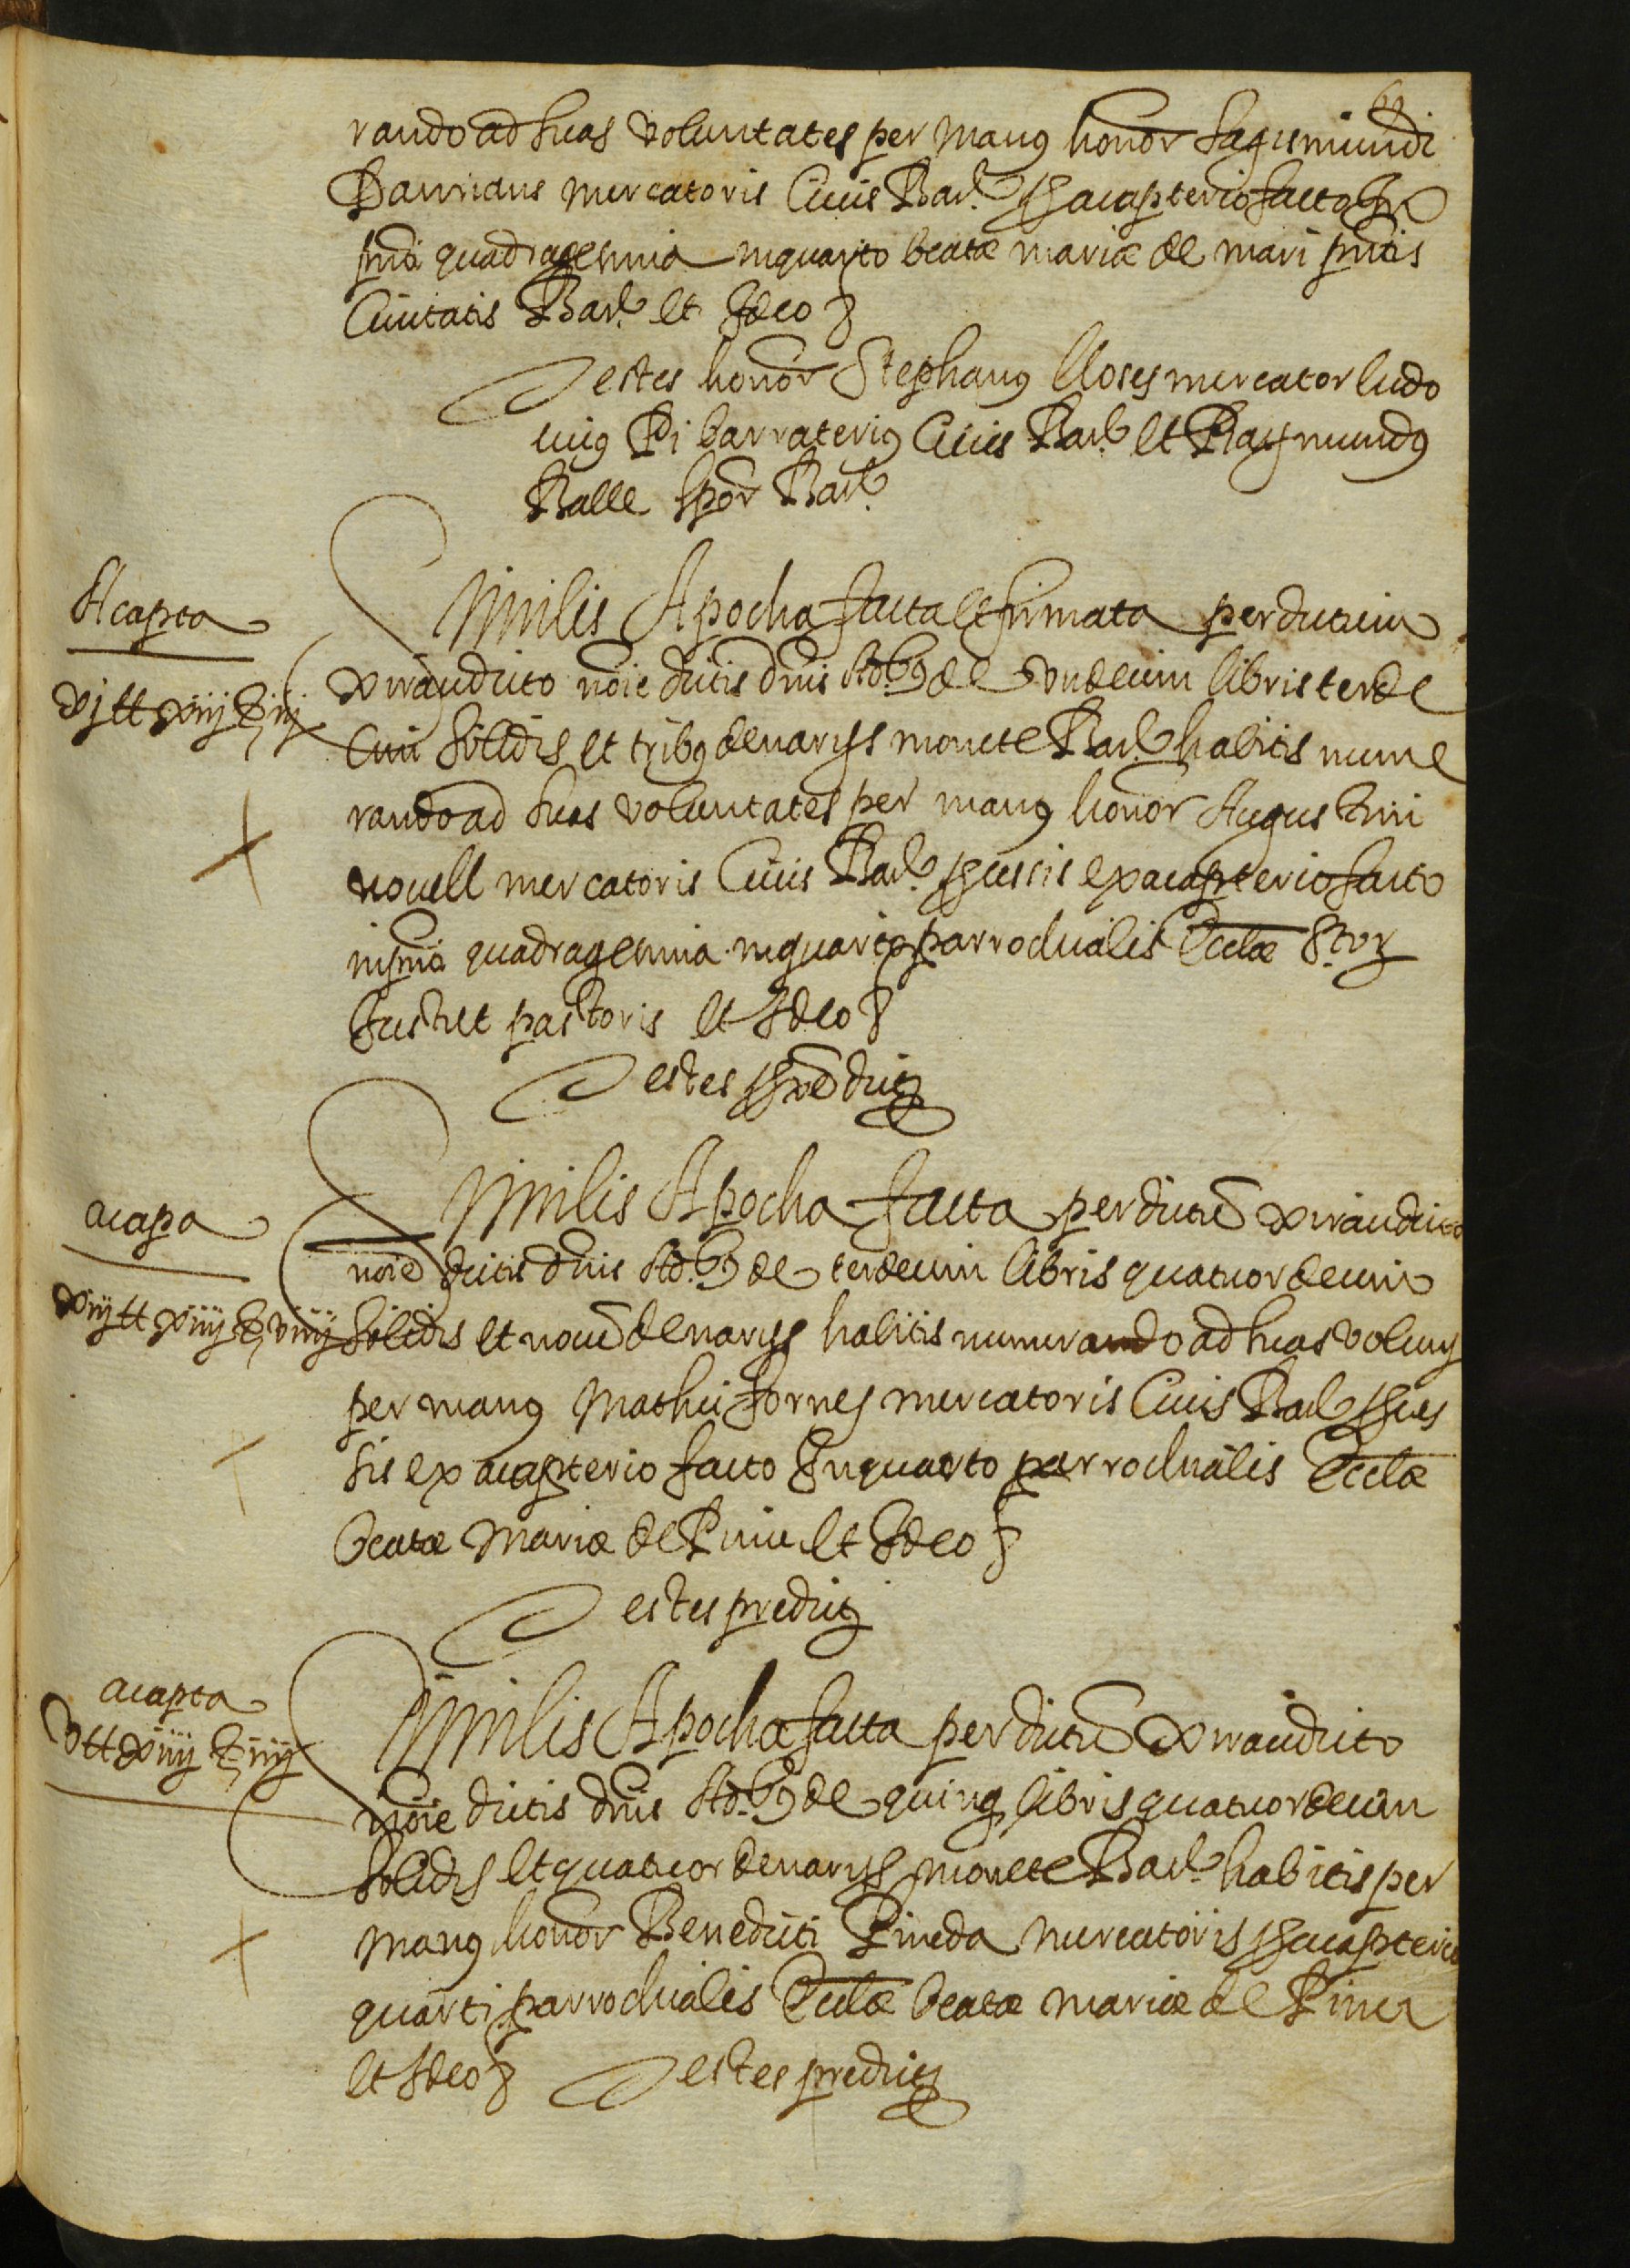 rando ad suas voluntates per manꝰ honor Sagismundi
Damians mercatoris Civis Barꝰ ex acapterio facto In
pñti quadragesima inquarto beatæ mariæ de mari pñtis
Civitatis Barꝰ et Ideo &
Testes honor Stephanꝰ lloses mercator ludo
vicꝰ Pi barraterius Civis Barꝰ et Raymundꝰ
Balle Barꝰ
Acapta
xj ll xiij ß iij
Similis Apocha facta et firmata per dictum
xirau dicto nõie dictis dñis de undecim libris terde
cim solidis et tribꝰ denarijs monete Barꝰ habitis nume
rando ad suas voluntates per manꝰ honor Augustini
novell mercatoris Civis Barꝰ ex acapterio facto
in pñti quadragesima inquarto parrochialis Ecclæ Stor
Justi et pastoris et Ideo &
Testes predicti
acapta
xiij ll xiiij ß viiij
Similis Apocha facta per dictũ xirau dicto
nõie dictis dñis de terdecim libris quatuordecim
solidis et novẽ denarijs habitis numerando ad suas volun
per manꝰ Mathei fornes mercatoris Civis Barꝰ
sis ex acapterio facto Inquarto parrochialis Ecclæ
beatæ Mariæ de Pinu et Ideo &
Testes predicti
acapta
v ll xiiij ß iiij
Similis Apocha facta per dictũ xirau dicto
nõie dictis dñis de quinq libris quatuordecim
solidis et quatuor denarijs monete Barꝰ habitis per
manꝰ honor Benedicti Pineda mercatoris ex acapterio
quarti parrochialis Ecclæ beatæ mariæ de Pinu
et Ideo & Testes predicti